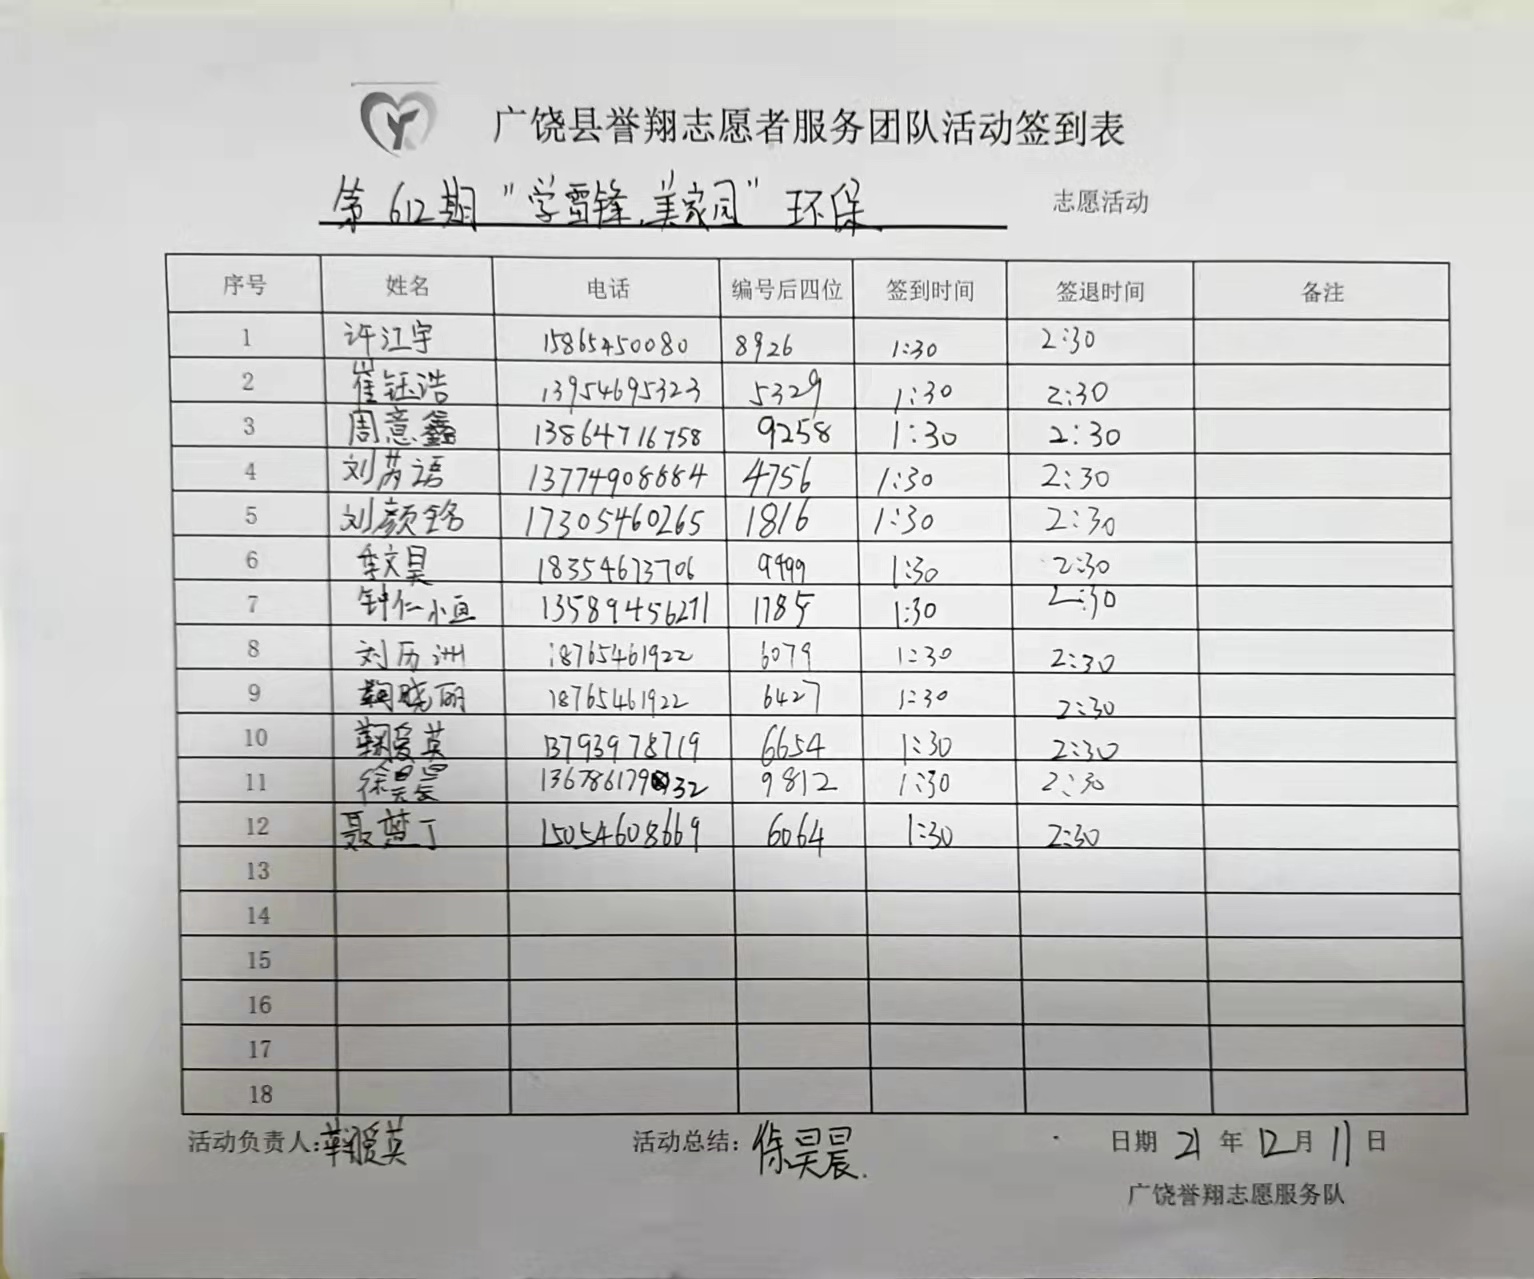 广饶县誉翔志愿者服务团队活动签到表
第612期“学雷锋,美家园”环保 志愿活动
序号 姓名 电话 编号后四位 签到时间 签退时间 备注
1 许江宇 15865450080 8926 1:30 2:30
2 崔钰浩 13954695323 5329 1:30 2:30
3 周意鑫 13864716758 9258 1:30 2:30
4 刘芮语 13774908884 4756 1:30 2:30
5 刘颜铭 17305460265 1816 1:30 2:30
6 季文昊 18354673706 9499 1:30 2:30
7 钟仁小亘 13589456271 1785 1:30 2:30
8 刘历洲 18765461922 6079 1:30 2:30
9 鞠晓丽 18765461922 6427 1:30 2:30
10 鞠爱英 13793978719 6654 1:30 2:30
11 徐昊晨 13678617932 9812 1:30 2:30
12 聂梦丁 15054608669 6064 1:30 2:30
13
14
15
16
17
18
活动负责人:鞠爱英 活动总结:徐昊晨. 日期 21 年 12 月 11 日
广饶誉翔志愿服务队